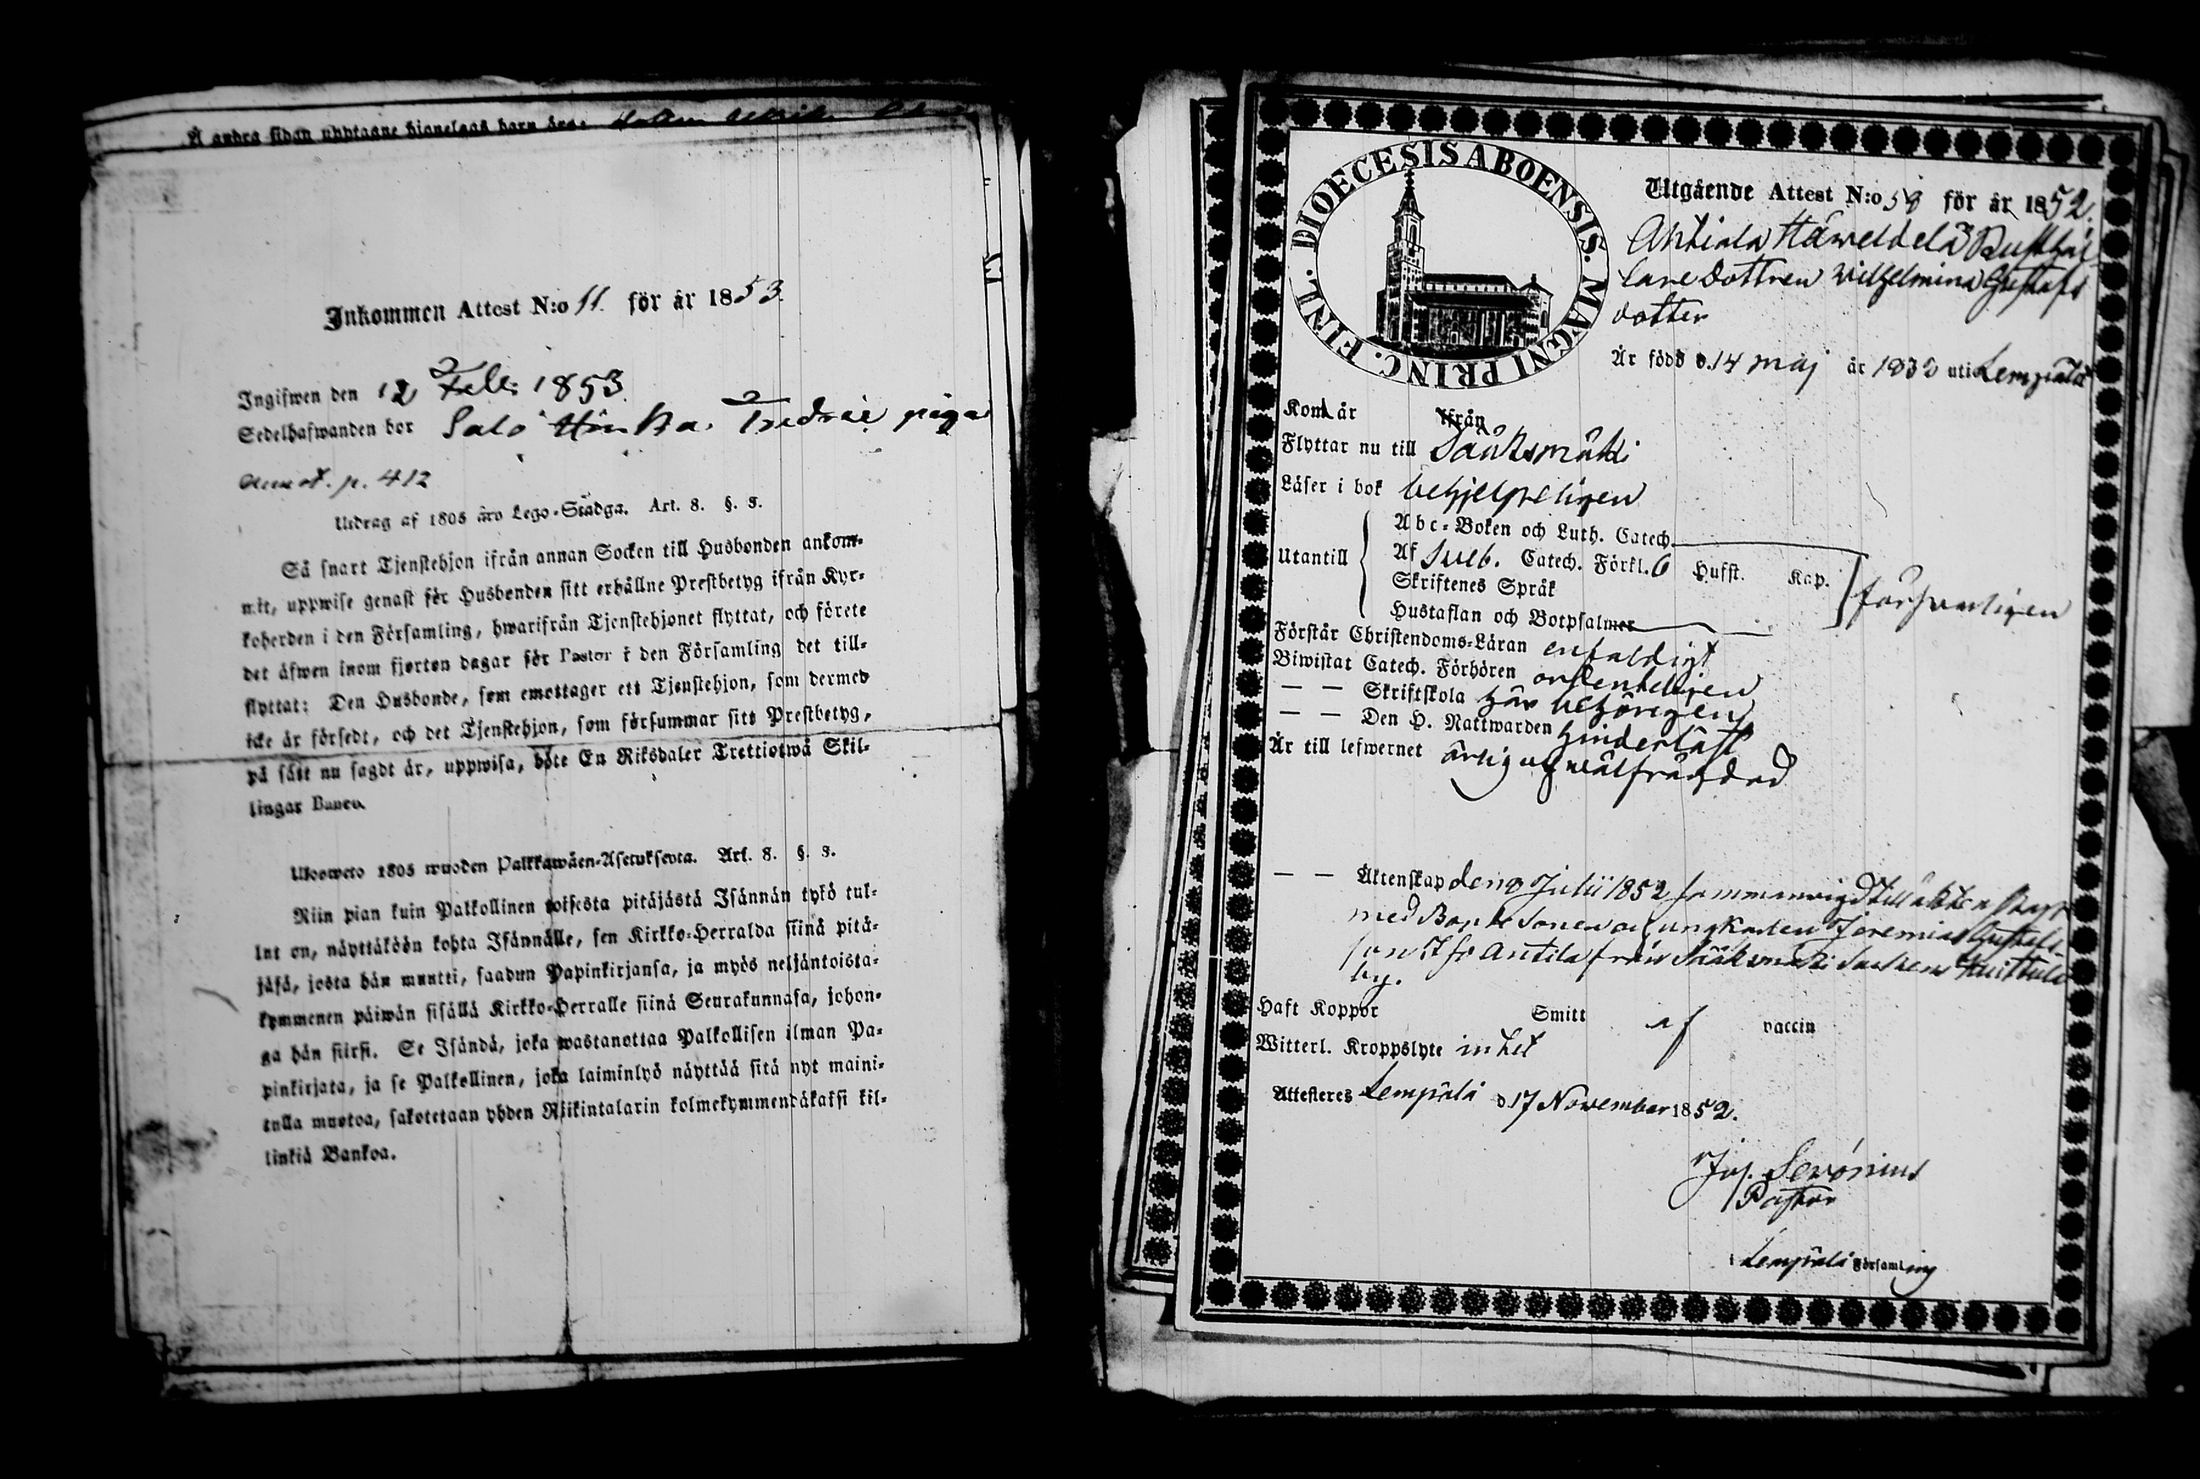 Å andra sidan upptagne hjonelags barn äro:
Inkommen Attest N:o 11. för år 1853.
Ingifwen den 12 Feb: 1853.
Sedelhafwanden bor Salo Fredrie piga
Annot. p. 412
Utdrag af 1805 års Lego-Stadga. Art. 8. §. 3.
Så snart Tjenstehjon ifrån annan Socken till Husbonden ankom-
mit, uppwise genast för Husbonden sitt erhållne Prestbetyg ifrån Kyr-
koherden i den Församling, hwarifrån Tjenstehjonet flyttat, och förete
det äfwen inom fjorton dagar för Pastor i den Församling det till-
flyttat: Den Husbonde, som emottager ett Tjenstehjon, som dermed
icke är försedt, och det Tjenstehjon, som försummar sitt Prestbetyg,
på sätt nu sagdt är, uppwisa, böte En Riksdaler Trettiotwå Skil-
lingar Banco.
Ulosweto 1805 wuoden Palkkawäen-Asetuksesta. Art. 8. §. 3.
Niin pian kuin Palkollinen toisesta pitäjästä Isännän tykö tul-
lut on, näyttäköön kohta Isännälle, sen Kirkko-Herralda siinä pitä-
jäsä, josta hän muutti, saadun Papinkirjansa, ja myös neljäntoista-
kymmenen päiwän sisällä Kirkko-Herralle siinä Seurakunnasa, johon-
ga hän siirsi. Se Isändä, joka wastanottaa Palkollisen ilman Pa-
pinkirjata, ja se Palkollinen, joka laiminlyö näyttää sitä nyt maini-
tulla muotoa, sakotetaan yhden Riikintalarin kolmekymmendäkaksi kil-
linkiä Bankoa.
DIOECESIS ABOENSIS. MAGNI PRINC. FINL.
Utgående Attest N:o 58 för år 1852.
Ahtiala Häweldelä Rusthål
lare dottren Wilhelmina Gustafs
dotter
Är född d. 14 maj år 1832 uti Lempäla
Kom år ifrån
Flyttar nu till Sääksmäki
Läser i bok behjelpeligen
Utantill
Abc-Boken och Luth. Catech.
Af Sveb. Catech. Förkl. 6 Hufst. Kap.
Skriftenes Språk
Hustaflan och Botpsalmer
försvarligen
Förstår Christendoms-Läran enfaldigt
Biwistat Catech. Förhören ordenteligen
— — Skriftskola här behörigen
— — Den H. Nattwarden hinderlöst
Är till lefwernet ärlig och wälfrägdad
— — Äktenskap den 9 Julii 1852 sammanvigd till äkta
med Bonde Sonen och ungkarlen Jeremias Gustafs
son Antila från Sääksmäki Socken
by.
Haft Koppor Smitt af vaccin
Witterl. Kroppslyte intet
Attesteres Lempälä d 17 November 1852.
Jos. Serónius
Pastor
i Lempälä Församling